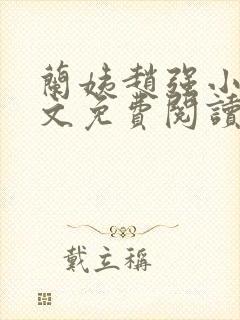 蘭姨趙强小
文免費閱讀
戴立稱